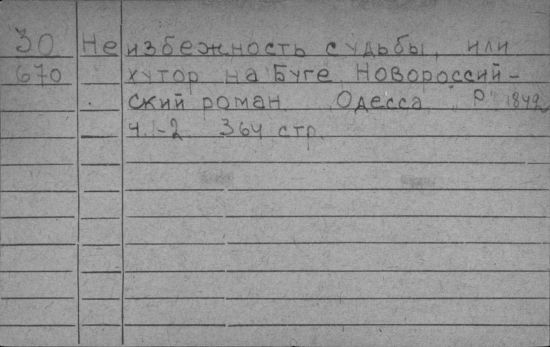 30 Неизбежность судьбы, или
670 хутор на Буге. Новороссий-
ский роман. Одесса 1842
ч. 1-2 364 стр.